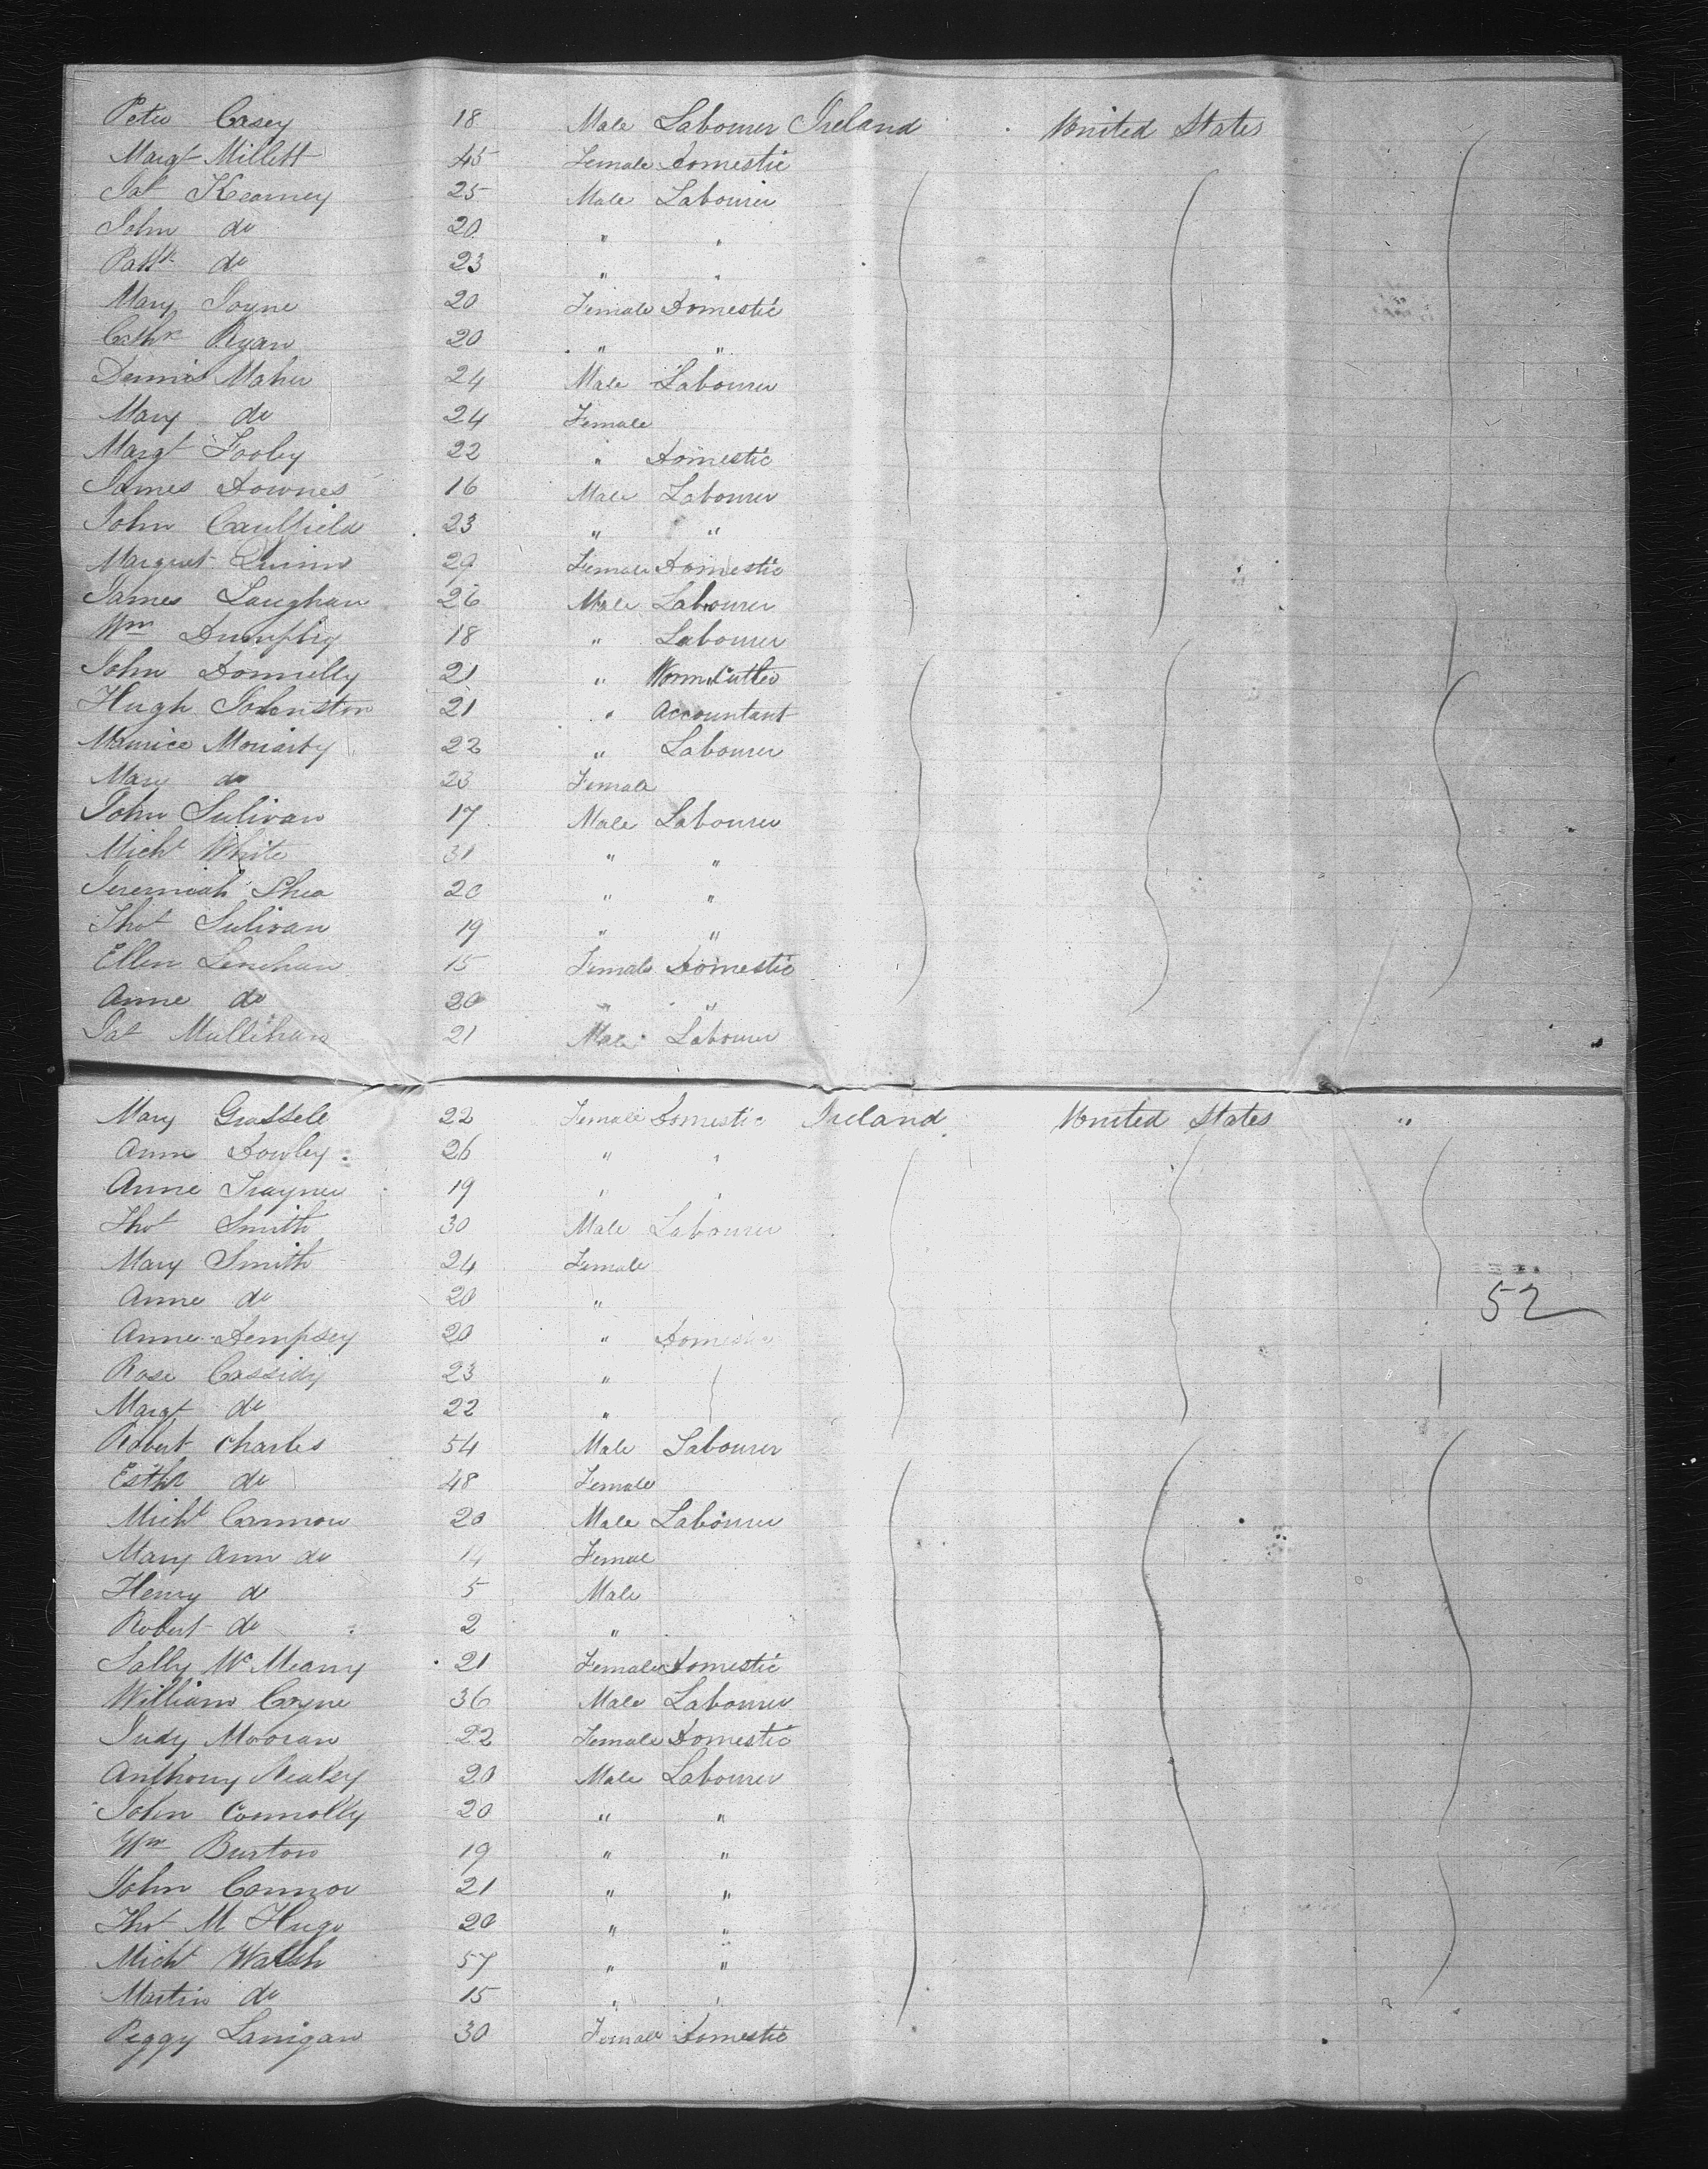 Peter Casey 18 Male Labourer Ireland United States
Margt Millett 45 Female Domestic
Pat Kearney 25 Male Labourer
John do 20 " "
Patk do 23 " "
Mary Joyne 20 Female Domestic
Cathe Ryan 20 " "
Dennis Maher 24 Male Labourer
Mary do 24 Female
Margt Fooley 22 " Domestic
James Downes 16 Male Labourer
John Caulfield 23 " "
Margret Quinn 29 Female Domestic
James Laughan 26 Male Labourer
Wm 18 " Labourer
John Donnelly 21 " Cutter
Hugh Johnston 21 " Accountant
Maurice Moriarty 22 " Labourer
Mary do 23 Female
John Sulivan 17 Male Labourer
Michl White 31 " "
Jeremiah Shea 20 " "
Thos Sulivan 19 " "
Ellen Lenehan 15 Female Domestic
Anne do 20 " "
Pat Mullihan 21 Male Labourer
Mary 22 Female Domestic Ireland United States "
Anne Dowley 26 " "
Anne Traynor 19 " "
Thos Smith 30 Male Labourer
Mary Smith 24 Female
Anne do 20 "
52
Anne Dempsey 20 " Domestic
Rose Cassidy 23 "
Margt do 22 "
Robert Charles 54 Male Labourer
Esthr do 48 Female
Michl Cannon 20 Male Labourer
Mary Ann do 14 Femal
Henry do 5 Male
Robert do 2 "
Sally McMeany 21 Female Domestic
William Coyne 36 Male Labourer
Judy Mooran 22 Female Domestic
Anthony Nealey 20 Male Labourer
John Connolly 20 " "
Wm Burton 19 " "
John Connor 21 " "
Thos M Hugo 20 " "
Michl Walsh 57 " "
Martin do 15 " "
Peggy Lanigan 30 Female Domestic